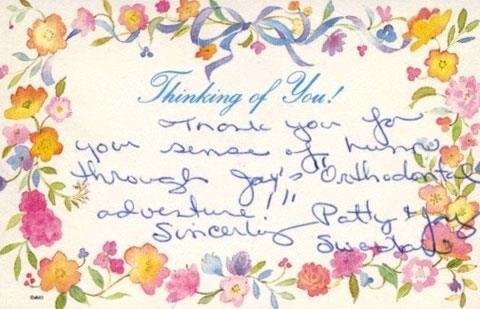 Thinking of You!
Thank you for
your sense of humor
through Jay's "Orthodontal
adventure!"
Sincerely Patty & Jay